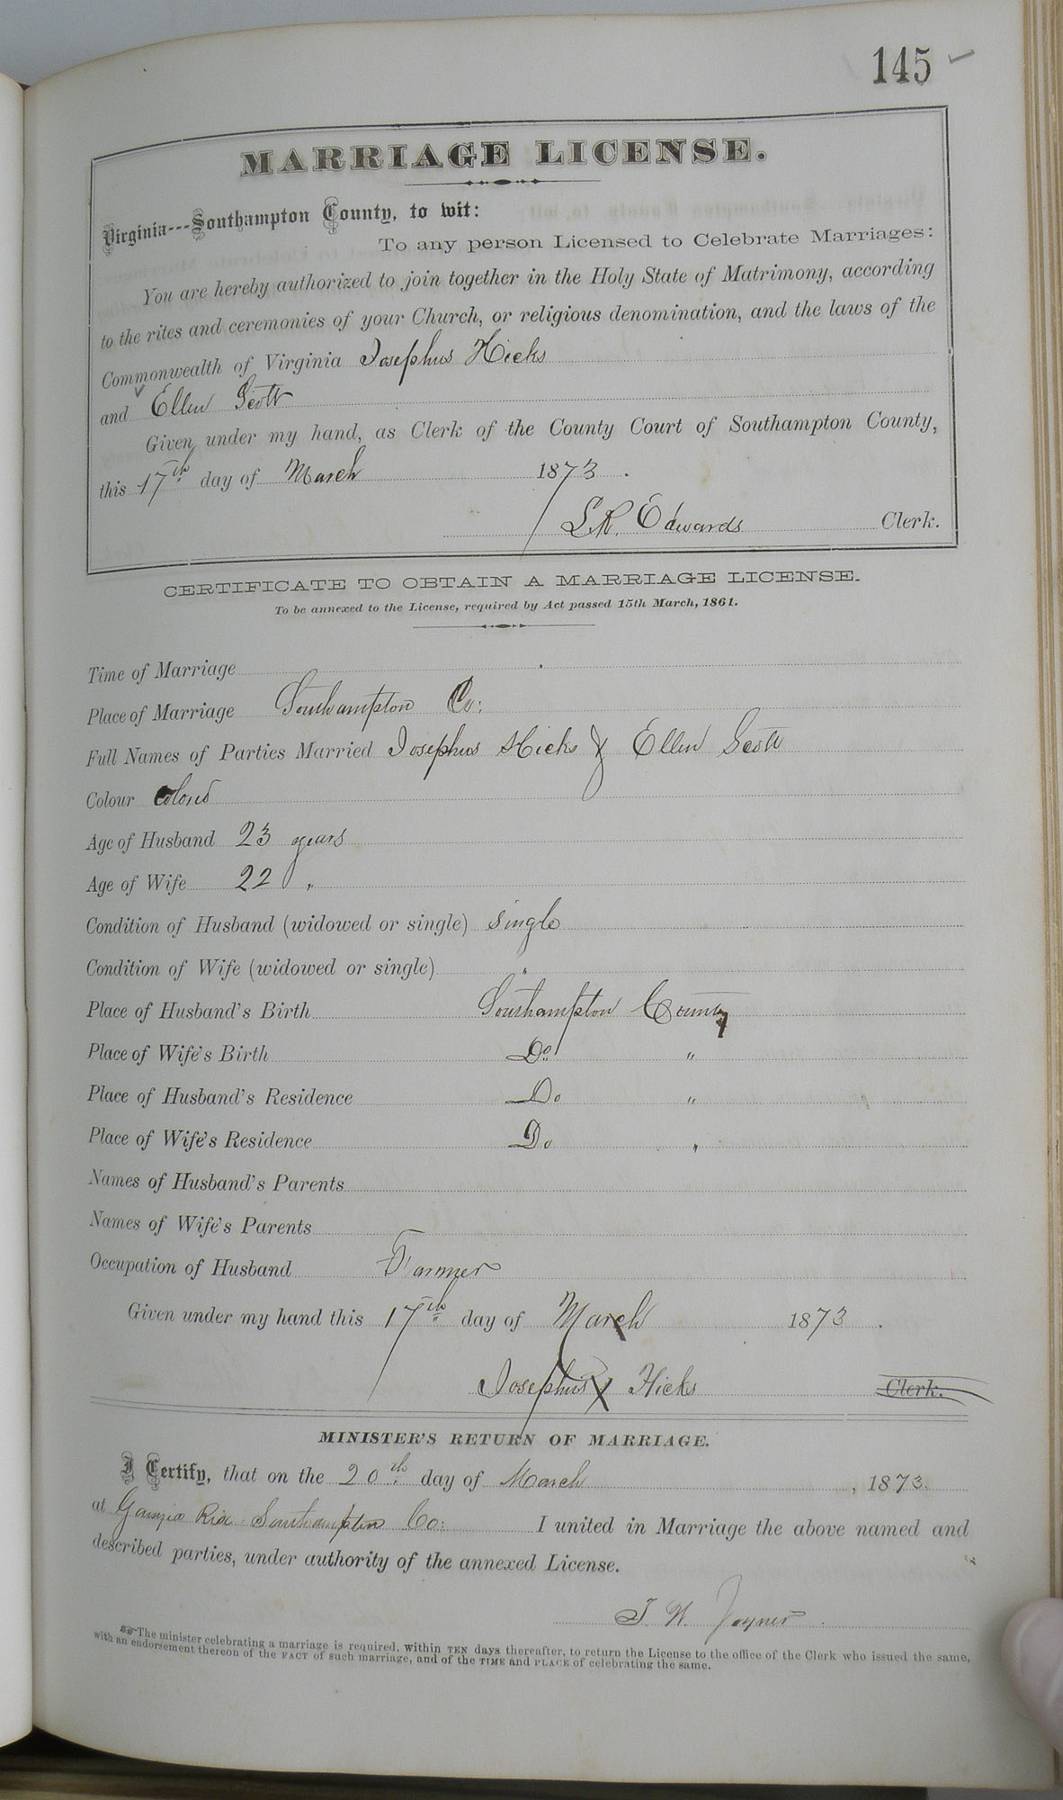 145
MARRIAGE LICENSE.
Virginia---Southampton County, to wit:
To any person Licensed to Celebrate Marriages:
You are hereby authorized to join together in the Holy State of Matrimony, according
to the rites and ceremonies of your Church, or religious denomination, and the laws of the
Commonwealth of Virginia Josephus Hicks
and Ellen Scott
Given under my hand, as Clerk of the County Court of Southampton County,
this 17th day of March 1873.
L.R. Edwards Clerk.
CERTIFICATE TO OBTAIN A MARRIAGE LICENSE.
To be annexed to the License, required by Act passed 15th March, 1861.
Time of Marriage
Place of Marriage Southampton Co:
Full Names of Parties Married Josephus Hicks & Ellen Scott
Colour Colord
Age of Husband 23 years
Age of Wife 22 "
Condition of Husband (widowed or single) single
Condition of Wife (widowed or single) "
Place of Husband's Birth Southampton County
Place of Wife's Birth Do "
Place of Husband's Residence Do "
Place of Wife's Residence Do "
Names of Husband's Parents
Names of Wife's Parents
Occupation of Husband Farmer
Given under my hand this 17th day of March 1873.
Josephus X Hicks Clerk.
MINISTER'S RETURN OF MARRIAGE.
I Certify, that on the 20th day of March, 1873.
at Southampton Co: I united in Marriage the above named and
described parties, under authority of the annexed License.
J. W. Joyner.
The minister celebrating a marriage is required, within TEN days thereafter, to return the License to the office of the Clerk who issued the same,
with an endorsement thereon of the FACT of such marriage, and of the TIME and PLACE of celebrating the same.